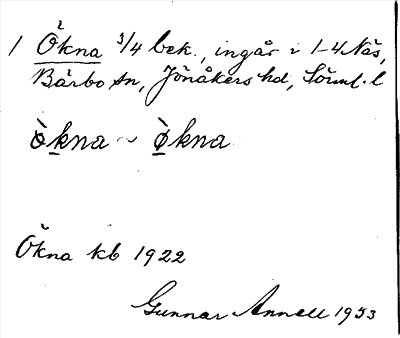 1 Ökna 3/4 bek., ingår i 1-4 Näs,
Bärbo sn, Jönåkers hd, Sörml. l
ò̱kna ~ ø̱̀kna
Ökna kb 1922
Gunnar Annell 1953